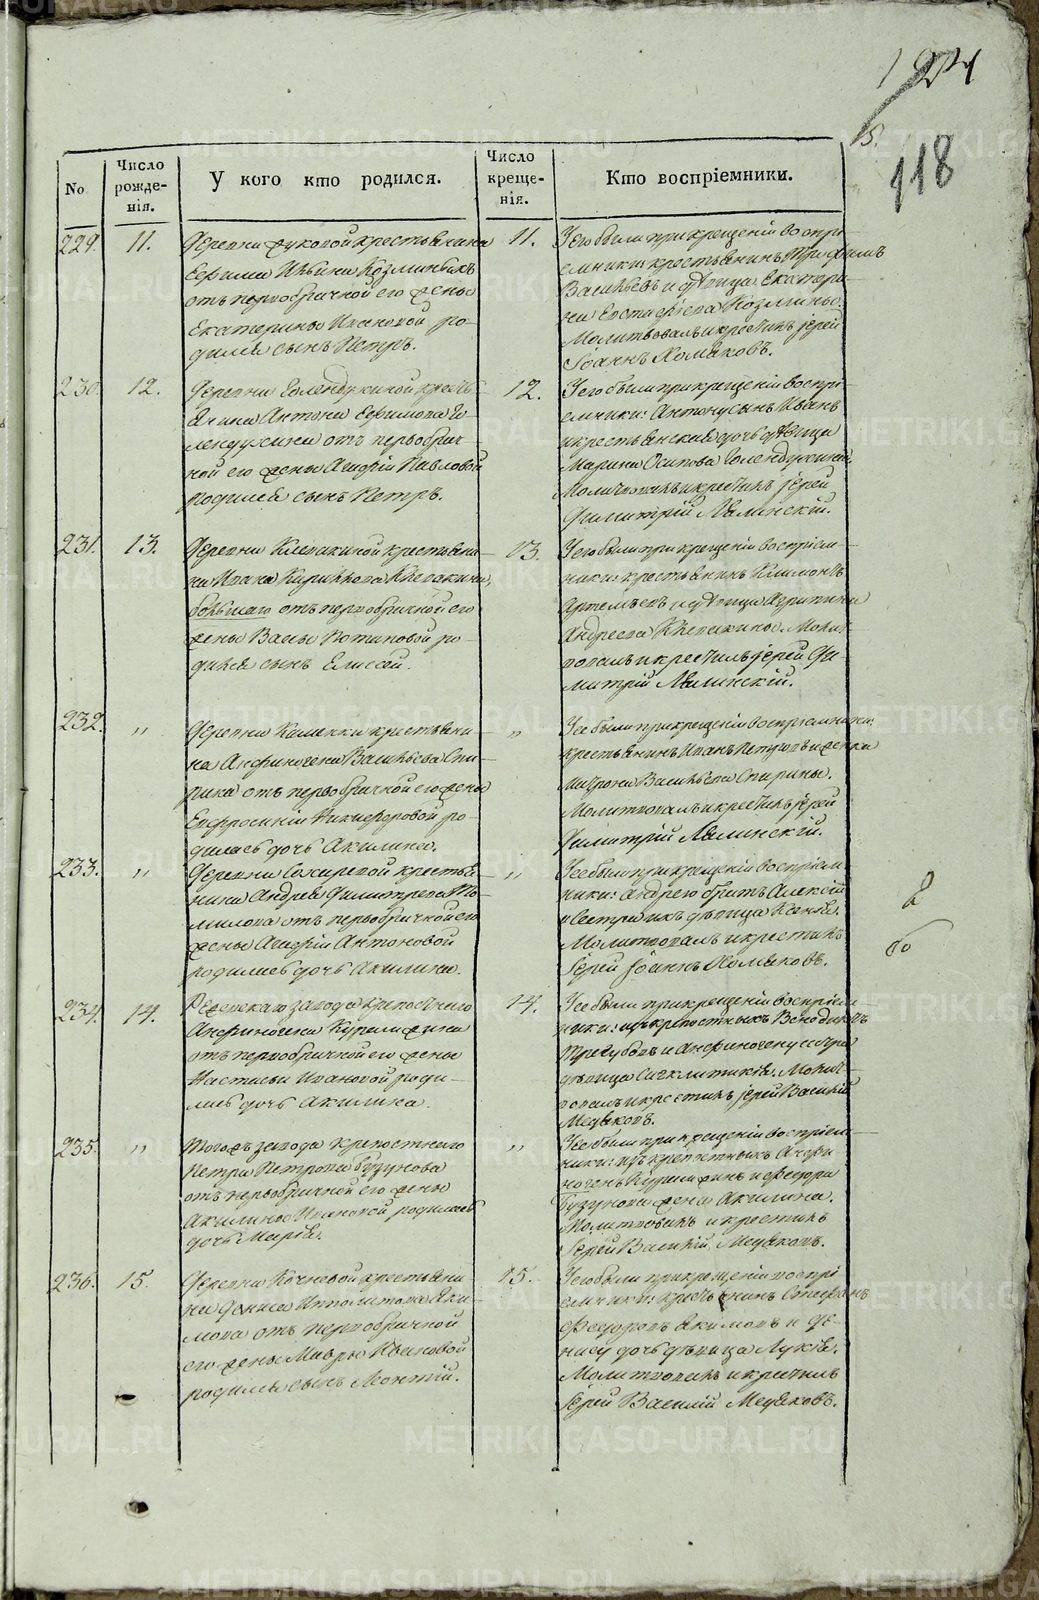 15.
118
№
Число рожденія.
У кого кто родился.
Число крещенія.
Кто воспріемники.
229. 11.
Деревни Луковой крестьянина
Ефима Ильина Козминыхъ
отъ первобрачной его жены
Екатерины Ивановой ро-
дился сынъ Петръ.
11.
У его были при крещеніи воспрі-
емники: крестьянинъ Трофимъ
Васильевъ и дѣвица Екатери-
на Козмины.
Молитвовалъ и крестилъ іерей
Іоаннъ Хомяковъ.
230. 12.
Деревни Голендухиной кресть-
янина Антона Ефимова Го-
лендухина отъ первобрач-
ной его жены Агафіи Павловой
родился сынъ Петръ.
12.
У его были при крещеніи воспрі-
емники: Антону сынъ Иванъ
и крестьянская дочь дѣвица
Марина Осипова Голендухины.
Молитвовалъ и крестилъ іерей
Димитрій Лялинскій.
231. 13.
Деревни Клевакиной крестьяни-
на Ивана Кирилова Клевакина
большаго отъ первобрачной его
жены Вассы Фотиновой ро-
дился сынъ Елисей.
13.
У его были при крещеніи воспріем-
ники: крестьянинъ Климонтъ
Артемьевъ и дѣвица Агрипина
Андреева Клевакины. Молит-
вовалъ и крестилъ іерей Ди-
митрій Лялинскій.
232. "
Деревни Каменки крестьяни-
на Анфиногена Васильева Спи-
рина отъ первобрачной его жены
Евфросиніи Никифоровой ро-
дилась дочь Акилина.
"
У ее были при крещеніи воспріемники:
крестьянинъ Иванъ Петровъ и женка
Матрона Васильева Спирины.
Молитвовалъ и крестилъ іерей
Димитрій Лялинскій.
233. "
Деревни Сохаревой крестья-
нина Андрея Димитрева То-
милова отъ первобрачной его
жены Агафіи Антоновой
родилась дочь Акилина.
"
У ее были при крещеніи воспріем-
ники: Андрею братъ Алексій
и сестра ихъ дѣвица Ксенія.
Молитвовалъ и крестилъ
іерей Іоаннъ Хомяковъ.
234. 14.
Режевскаго завода крепостнаго
Анфиногена
отъ первобрачной его жены
Настасьи Ивановой роди-
лась дочь Акилина.
14.
У ее были при крещеніи воспріем-
ники: изъ крепостныхъ Венедиктъ
Трегубовъ и Анфиногену сестра
дѣвица Синклитикія. Молит-
вовалъ и крестилъ іерей Василій
Медяковъ.
235. "
Тогожъ завода крепостнаго
Петра Петрова Бузунова
отъ первобрачной его жены
Акилины Ивановой родилась
дочь Марія.
"
У ее были при крещеніи воспріем-
ники: изъ крепостныхъ Анфи-
ногенъ и Федора
Бузунова жена Акилина.
Молитвовалъ и крестилъ
іерей Василій Медяковъ.
236. 15.
Деревни Кочневой крестьяни-
на Дениса Ипполитова Яки-
мова отъ первобрачной
его жены Мавры
родился сынъ Леонтій.
15.
У его были при крещеніи воспрі-
емники: крестьянинъ Стефанъ
Федоровъ Якимовъ и Де-
нису дочь дѣвица Лукія.
Молитвовалъ и крестилъ
іерей Василій Медяковъ.